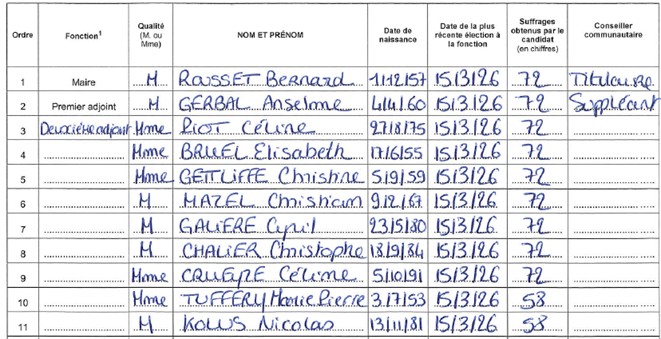 Ordre Fonction¹ Qualité (M. ou Mme) NOM ET PRÉNOM Date de naissance Date de la plus récente élection à la fonction Suffrages obtenus par le candidat (en chiffres) Conseiller communautaire
1 Maire M ROUSSET Bernard 1/12/57 15/3/26 72 Titulaire
2 Premier adjoint M GERBAL Anselme 4/4/60 15/3/26 72 Suppléant
3 Deuxième adjoint Mme RIOT Céline 27/8/75 15/3/26 72
4 Mme BRUEL Elisabeth 17/6/55 15/3/26 72
5 Mme GETLIFFE Christine 5/9/59 15/3/26 72
6 M MAZEL Christian 9/12/67 15/3/26 72
7 M GALIÈRE Cyril 23/5/80 15/3/26 72
8 M CHALIER Christophe 18/9/84 15/3/26 72
9 Mme CRUEYRE Céline 5/10/91 15/3/26 72
10 Mme TUFFERY Marie Pierre 3/7/53 15/3/26 58
11 M KOLUS Nicolas 13/11/81 15/3/26 58